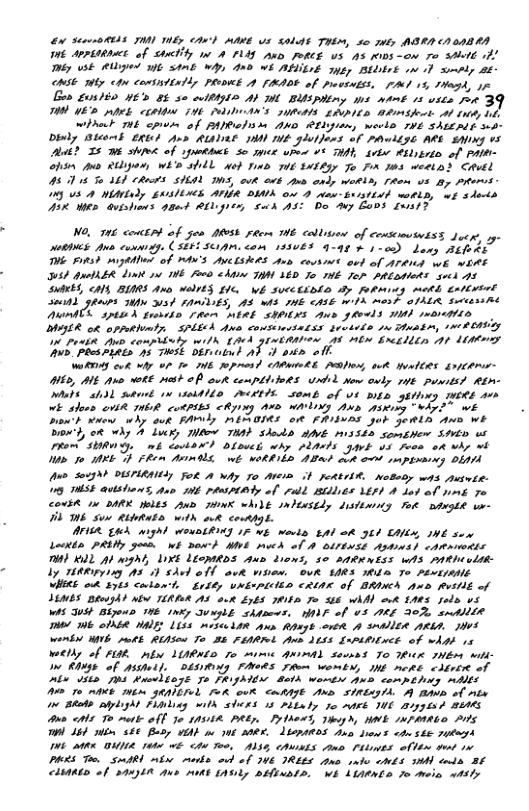 EN SCOUNDRELS THAT THEY CAN'T MAKE US SALUTE THEM, SO THEY ABRACADABRA
THE APPEARANCE OF SANCTITY IN A FLAG AND FORCE US AS KIDS-ON TO SALUTE IT!
THEY USE RELIGION THE SAME WAY, AND WE BELIEVE THEY BELIEVE IN IT SIMPLY BE-
CAUSE THEY CAN CONSISTENTLY PRODUCE A FACADE OF PIOUSNESS. FACT IS, THOUGH, IF
GOD EXISTED HE'D BE SO OUTRAGED AT THE BLASPHEMY HIS NAME IS USED FOR 39
THAT HE'D MAKE CERTAIN THE POLITICIAN'S THROATS ERUPTED BRIMSTONE AT EVERY LIE.
WITHOUT THE OPIUM OF PATRIOTISM AND RELIGION, WOULD THE SHEEPLE SUD-
DENLY BECOME ERECT AND REALIZE THAT THE GLUTTONS OF PRIVILEGE ARE EATING US
ALIVE? IS THE STUPOR OF IGNORANCE SO THICK UPON US THAT, EVEN RELIEVED OF PATRI-
OTISM AND RELIGION, WE'D STILL NOT FIND THE ENERGY TO FIX THIS WORLD? CRUEL
AS IT IS TO LET CREEPS STEAL THIS, OUR ONE AND ONLY WORLD, FROM US BY PROMIS-
ING US A HEAVENLY EXISTENCE AFTER DEATH ON A NON-EXISTENT WORLD, WE SHOULD
ASK HARD QUESTIONS ABOUT RELIGION, SUCH AS: DO ANY GODS EXIST?
NO. THE CONCEPT OF GOD AROSE FROM THE COLLISION OF CONSCIOUSNESS, LUCK, IG-
NORANCE AND CUNNING. (SEE: SCIAM.COM ISSUES 9-98 & 1-00) LONG BEFORE
THE FIRST MIGRATION OF MAN'S ANCESTORS AND COUSINS OUT OF AFRICA WE WERE
JUST ANOTHER LINK IN THE FOOD CHAIN THAT LED TO THE TOP PREDATORS SUCH AS
SNAKES, CATS, BEARS AND WOLVES, ETC. WE SUCCEEDED BY FORMING MORE EXTENSIVE
SOCIAL GROUPS THAN JUST FAMILIES, AS WAS THE CASE WITH MOST OTHER SUCCESSFUL
ANIMALS. SPEECH EVOLVED FROM MERE SHRIEKS AND GROWLS THAT INDICATED
DANGER OR OPPORTUNITY. SPEECH AND CONSCIOUSNESS EVOLVED IN TANDEM, INCREASING
IN POWER AND COMPLEXITY WITH EACH GENERATION AS MEN EXCELLED AT LEARNING
AND PROSPERED AS THOSE DEFICIENT AT IT DIED OFF.
WORKING OUR WAY UP TO THE TOPMOST CARNIVORE POSITION, OUR HUNTERS EXTERMIN-
ATED, ATE AND WORE MOST OF OUR COMPETITORS UNTIL NOW ONLY THE PUNIEST REM-
NANTS STILL SURVIVE IN ISOLATED POCKETS. SOME OF US DIED GETTING THERE AND
WE STOOD OVER THEIR CORPSES CRYING AND WAILING AND ASKING "WHY?" WE
DIDN'T KNOW WHY OUR FAMILY MEMBERS OR FRIENDS GOT GORED AND WE
DIDN'T, OR WHY A LUCKY THROW THAT SHOULD HAVE MISSED SOMEHOW SAVED US
FROM STARVING. WE COULDN'T DEDUCE WHY PLANTS GAVE US FOOD OR WHY WE
HAD TO TAKE IT FROM ANIMALS. WE WORRIED ABOUT OUR OWN IMPENDING DEATH
AND SOUGHT DESPERATELY FOR A WAY TO AVOID IT FOREVER. NOBODY WAS ANSWER-
ING THESE QUESTIONS, AND THE PROSPERITY OF FULL BELLIES LEFT A LOT OF TIME TO
COWER IN DARK HOLES AND THINK WHILE INTENSELY LISTENING FOR DANGER UN-
TIL THE SUN RETURNED WITH OUR COURAGE.
AFTER EACH NIGHT WONDERING IF WE WOULD EAT OR GET EATEN, THE SUN
LOOKED PRETTY GOOD. WE DON'T HAVE MUCH OF A DEFENSE AGAINST CARNIVORES
THAT KILL AT NIGHT, LIKE LEOPARDS AND LIONS, SO DARKNESS WAS PARTICULAR-
LY TERRIFYING AS IT SHUT OFF OUR VISION. OUR EARS TRIED TO PENETRATE
WHERE OUR EYES COULDN'T. EVERY UNEXPECTED CREAK OF BRANCH AND RUSTLE OF
LEAVES BROUGHT NEW TERROR AS OUR EYES TRIED TO SEE WHAT OUR EARS TOLD US
WAS JUST BEYOND THE INKY JUNGLE SHADOWS. HALF OF US ARE 20% SMALLER
THAN THE OTHER HALF; LESS MUSCULAR AND RANGE OVER A SMALLER AREA. THUS
WOMEN HAVE MORE REASON TO BE FEARFUL AND LESS EXPERIENCE OF WHAT IS
WORTHY OF FEAR. MEN LEARNED TO MIMIC ANIMAL SOUNDS TO TRICK THEM WITH-
IN RANGE OF ASSAULT. DESIRING FAVORS FROM WOMEN, THE MORE CLEVER OF
MEN USED THIS KNOWLEDGE TO FRIGHTEN BOTH WOMEN AND COMPETING MALES
AND TO MAKE THEM GRATEFUL FOR OUR COURAGE AND STRENGTH. A BAND OF MEN
IN BROAD DAYLIGHT FLAILING WITH STICKS IS PLENTY TO MAKE THE BIGGEST BEARS
AND CATS TO MOVE OFF TO EASIER PREY. PYTHONS, THOUGH, HAVE INFRARED PITS
THAT LET THEM SEE BODY HEAT IN THE DARK. LEOPARDS AND LIONS CAN SEE THROUGH
THE DARK BETTER THAN WE CAN TOO. ALSO, CANINES AND FELINES OFTEN HUNT IN
PACKS TOO. SMART MEN MOVED OUT OF THE TREES AND INTO CAVES THAT COULD BE
CLEARED OF DANGER AND MORE EASILY DEFENDED. WE LEARNED TO AVOID NASTY